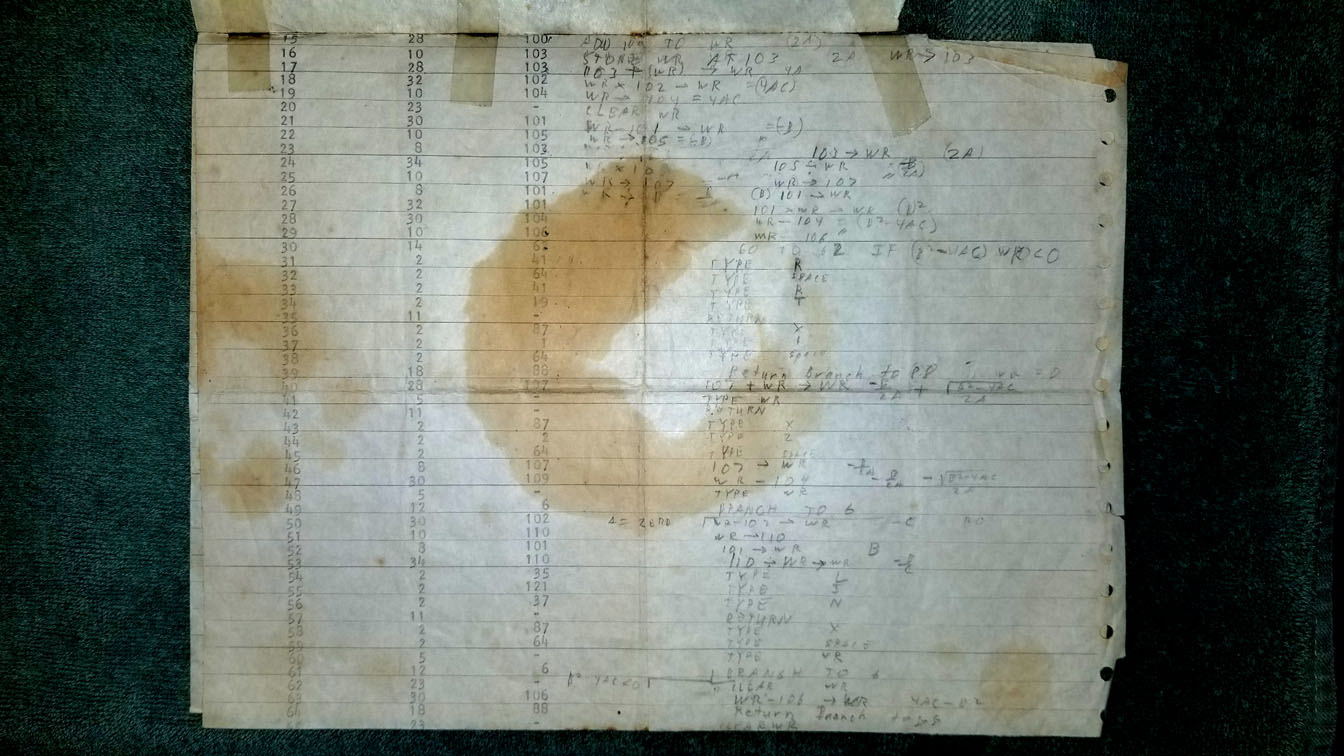 15 28 100 ADD 100 TO WR (2A)
16 10 103 STORE WR AT 103 2A WR → 103
17 28 103 103 + (WR) → WR 4A
18 32 102 WR × 102 → WR = (4AC)
19 10 104 WR → 104 = 4AC
20 23 - CLEAR WR
21 30 101 WR - 101 → WR = (-B)
22 10 105 WR → 105 = (-B)
23 8 103 103 → WR (2A)
24 34 105 105 ÷ WR
25 10 107 WR → 107 WR → 107
26 8 101 (B) 101 → WR
27 32 101 101 × WR → WR (B²
28 30 104 WR - 104 = (B² - 4AC)
29 10 106 WR 106 "
30 14 GO TO 62 IF (B² - 4AC) WR < 0
31 2 41 TYPE R
32 2 64 TYPE SPACE
33 2 41 TYPE R
34 2 19 TYPE T
35 11 - RETURN
36 2 87 TYPE X
37 2 1 TYPE 1
38 2 64 TYPE SPACE
39 18 88 Return branch to
40 28 107 107 + WR → WR -B/2A + √B²-4AC/2A
41 5 - TYPE WR
42 11 - RETURN
43 2 87 TYPE X
44 2 2 TYPE 2
45 2 64 TYPE SPACE
46 8 107 107 → WR
47 30 109 WR - 109 -B/2A - √B²-4AC/2A
48 5 - TYPE WR
49 12 6 BRANCH TO 6
50 30 102 A = ZERO WR-102 → WR -C
51 10 110 WR → 110
52 8 101 101 → WR B
53 34 110 110 ÷ WR → WR
54 2 35 TYPE L
55 2 121 TYPE I
56 2 37 TYPE N
57 11 - RETURN
58 2 87 TYPE X
59 2 64 TYPE SPACE
60 5 - TYPE WR
61 12 6 BRANCH TO 6
62 23 - CLEAR WR
63 30 106 WR-106 → WR 4AC-B²
64 18 88 Return Branch to 88
23 - CLEAR WR